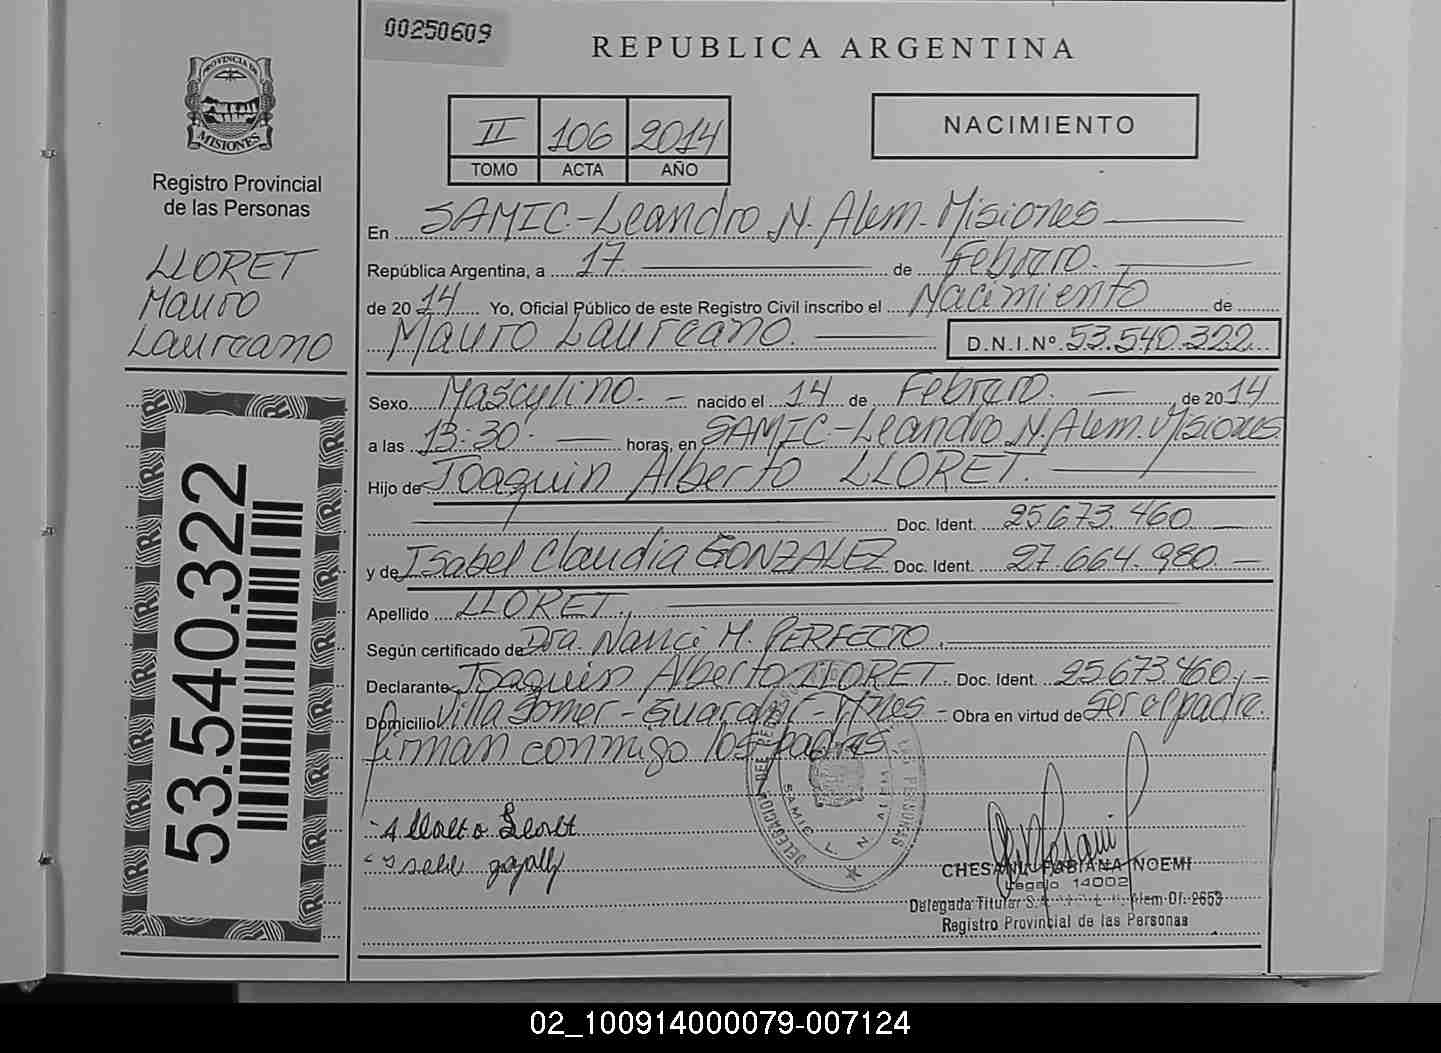 00250609
REPUBLICA ARGENTINA
PROVINCIA DE
MISIONES
Registro Provincial
de las Personas
LLORET
Mauro
Laureano
II 106 2014
TOMO ACTA AÑO
NACIMIENTO
En SAMIC-Leandro N. Alem-Misiones
República Argentina, a 17 de Febrero
de 2014 Yo, Oficial Público de este Registro Civil inscribo el Nacimiento de
Mauro Laureano. D.N.I.Nº 53.540.322
Sexo Masculino. nacido el 14 de Febrero. de 2014
a las 13:30 horas, en SAMIC-Leandro N. Alem. Misiones
Hijo de Joaquin Alberto LLORET.
Doc. Ident. 25.673.460
y de Isabel Claudia GONZALEZ Doc. Ident. 27.664.980
Apellido LLORET.
Según certificado de Dra. Nanci M. PERFECTO.
Declarante Joaquin Alberto LLORET. Doc. Ident. 25.673.460.
Domicilio Villa Somer-Guarani-Mnes- Obra en virtud de Ser el padre.
firman conmigo los padres
53.540.322
DELEGACION
SAMIC L. N. ALEM
CHESANI, FABIANA NOEMI
Legajo 14002
Delegada Titular Alem Of. 2653
Registro Provincial de las Personas
02_100914000079-007124